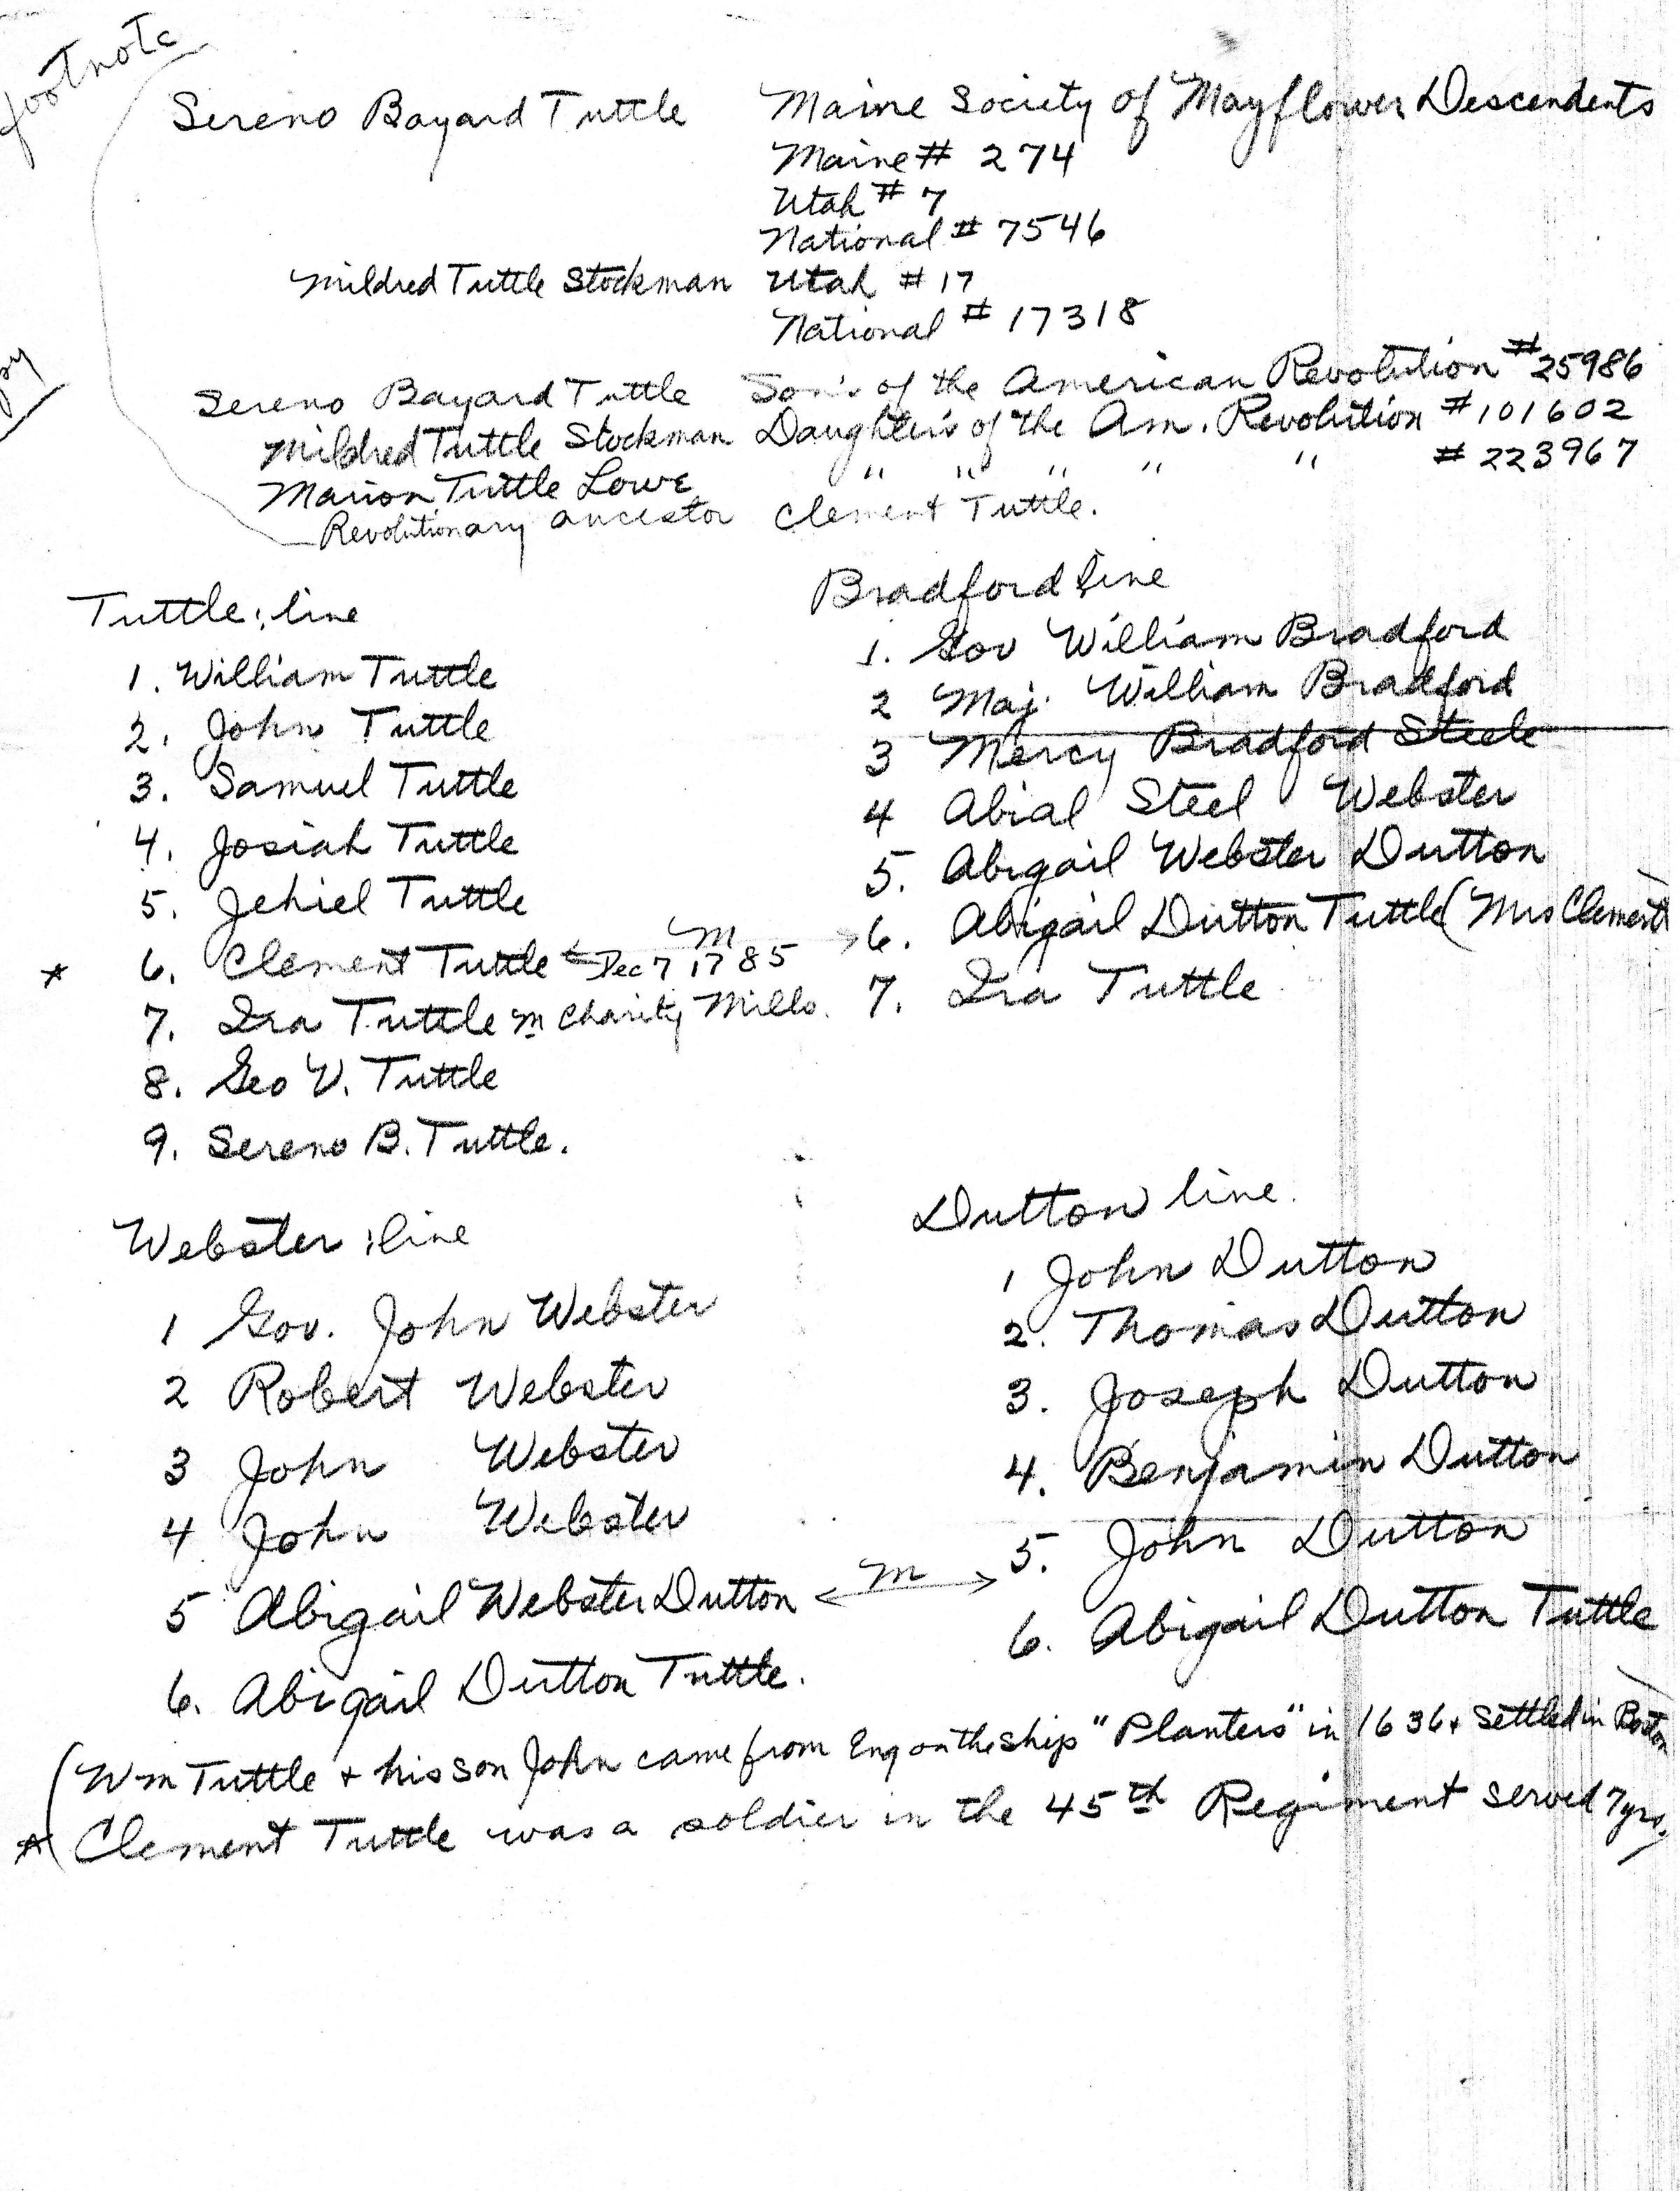 footnote
Sereno Bayard Tuttle Maine Society of Mayflower Descendents
Maine # 274
Utah # 7
National # 7546
Mildred Tuttle Stockman Utah # 17
National # 17318
Sereno Bayard Tuttle Son's of the American Revolution # 25986
Mildred Tuttle Stockman Daughter's of the Am. Revolution # 101602
Marion Tuttle Lowe " " " " " # 223967
Revolutionary ancestor Clement Tuttle.
Tuttle: line
1. William Tuttle
2. John Tuttle
3. Samuel Tuttle
4. Josiah Tuttle
5. Jehiel Tuttle
* 6. Clement Tuttle ← m Dec 7 1785 →
7. Ira Tuttle m Charity Mills.
8. Geo V. Tuttle
9. Sereno B. Tuttle.
Bradford line
1. Gov William Bradford
2 Maj. William Bradford
3 Mercy Bradford Steele
4 Abial Steel Webster
5. Abigail Webster Dutton
6. Abigail Dutton Tuttle (Mrs Clement)
7. Ira Tuttle
Webster : line
1 Gov. John Webster
2 Robert Webster
3 John Webster
4 John Webster
5 Abigail Webster Dutton ← m →
6. Abigail Dutton Tuttle.
Dutton line.
1 John Dutton
2. Thomas Dutton
3. Joseph Dutton
4. Benjamin Dutton
5. John Dutton
6. Abigail Dutton Tuttle
(Wm Tuttle + his son John came from Eng on the ship "Planters" in 1636 + settled in Boston)
* (Clement Tuttle was a soldier in the 45th Regiment served 7 yrs.)